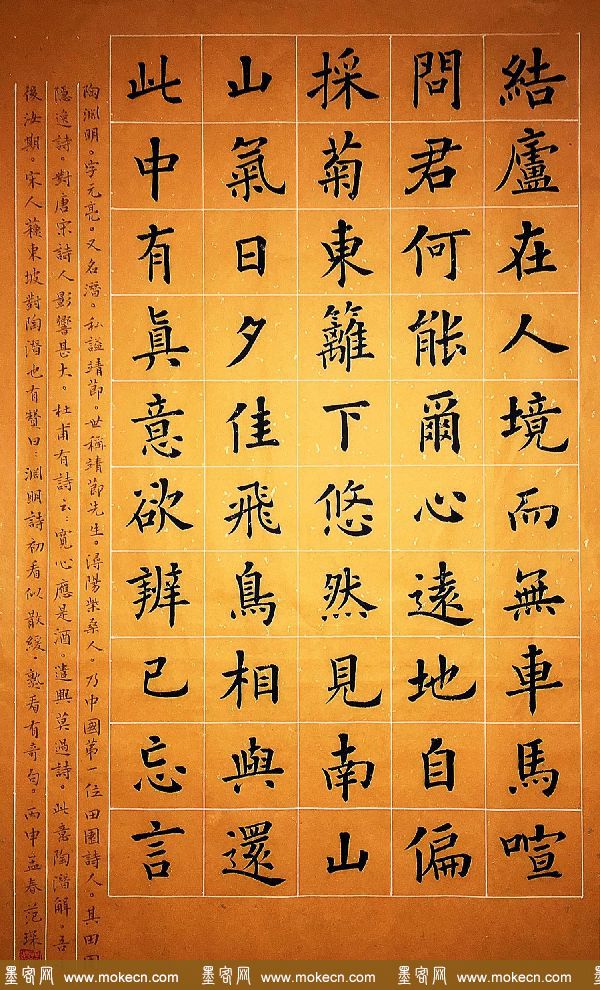 結廬在人境而無車馬喧
問君何能爾心遠地自偏
採菊東籬下悠然見南山
山氣日夕佳飛鳥相與還
此中有眞意欲辨已忘言
陶淵明。字元亮。又名潛。私謚靖節。世稱靖節先生。潯陽柴桑人。乃中國第一位田園詩人。其田園
隱逸詩。對唐宋詩人影響甚大。杜甫有詩云：寬心應是酒。遣興莫過詩。此意陶潛解。吾
後汝期。宋人蘇東坡對陶潛也有贊曰：淵明詩初看似散緩。熟看有奇句。丙申孟春范琛
墨客网 www.mokecn.com 墨客网 www.mokecn.com 墨客网 www.mokecn.com